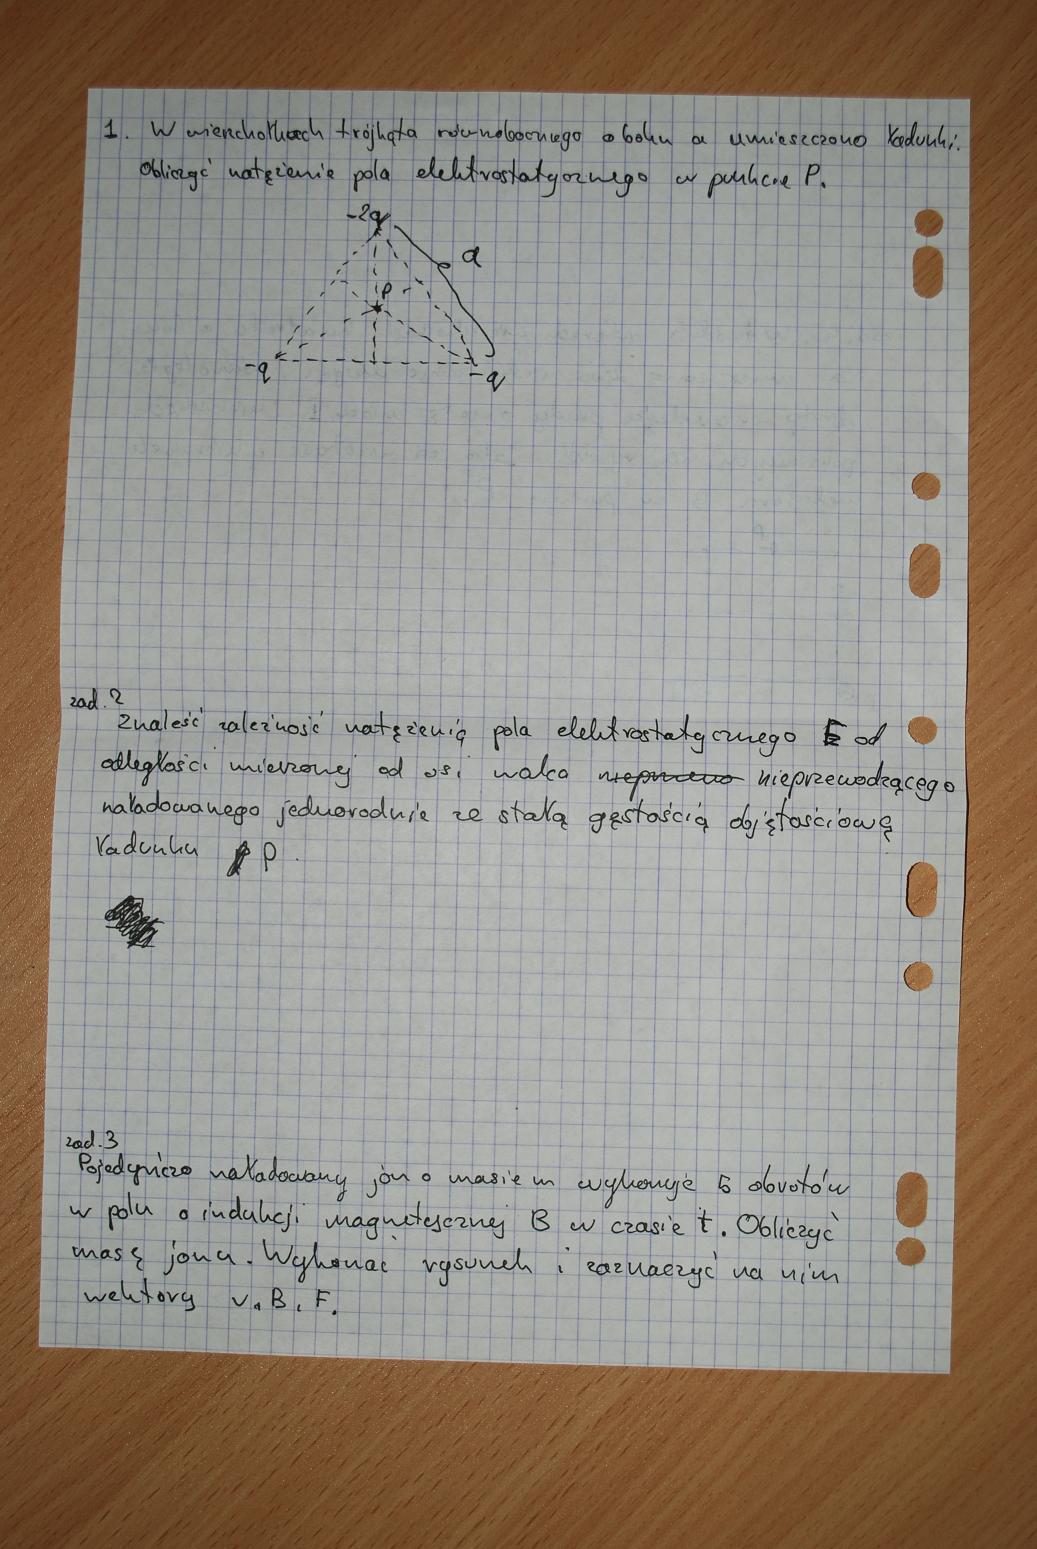 1. W wierzchołkach trójkąta równobocznego o boku a umieszczono ładunki.
Obliczyć natężenie pola elektrostatycznego w punkcie P.
-2q
a
P
-q
-q
zad.2
Znaleść zależność natężenią pola elektrostatycznego E od
odległości mierzonej od osi walca nieprzewodzącego
naładowanego jednorodnie ze stałą gęstością objętościową
ładunku ρ.
zad.3
Pojedyńczo naładowany jon o masie m wykonuje 5 obrotów
w polu o indukcji magnetycznej B w czasie t. Obliczyć
masę jonu. Wykonać rysunek i zaznaczyć na nim
wektory v, B, F.